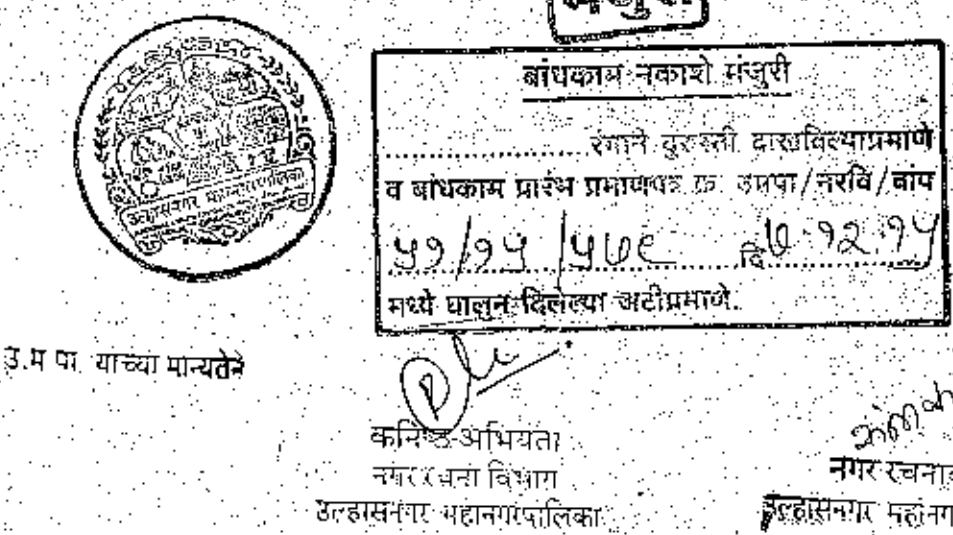 मंजुरी
बांधकाम नकाशे मंजुरी
..................रंगाने दुरुस्ती दाखविल्याप्रमाणे
व बांधकाम प्रारंभ प्रमाणपत्र क्र. उमपा/नरवि/बांप
५१/१५/५७९ दि ७.१२.१५
मध्ये घालुन दिलेल्या अटीप्रमाणे.
उल्हासनगर महानगरपालिका
उ.म.पा. याच्या मान्यतेने
कनिष्ठ अभियता
नगर रचना विभाग
उल्हासनगर महानगरपालिका
नगर रचना
उल्हासनगर महानग